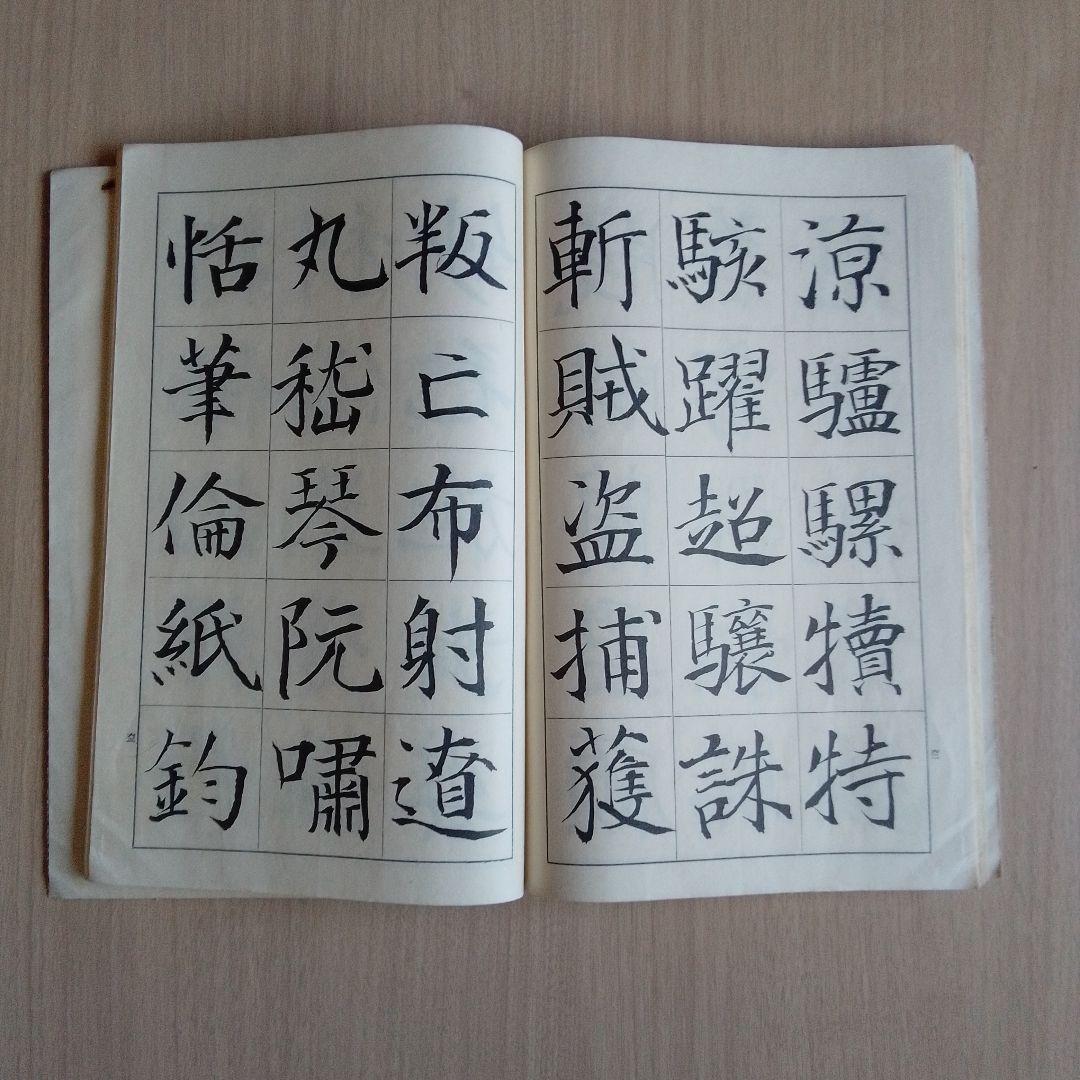 涼驢騾犢特
駭躍超驤誅
斬賊盗捕獲
叛亡布射遼
丸嵇琴阮嘯
恬筆倫紙鈞